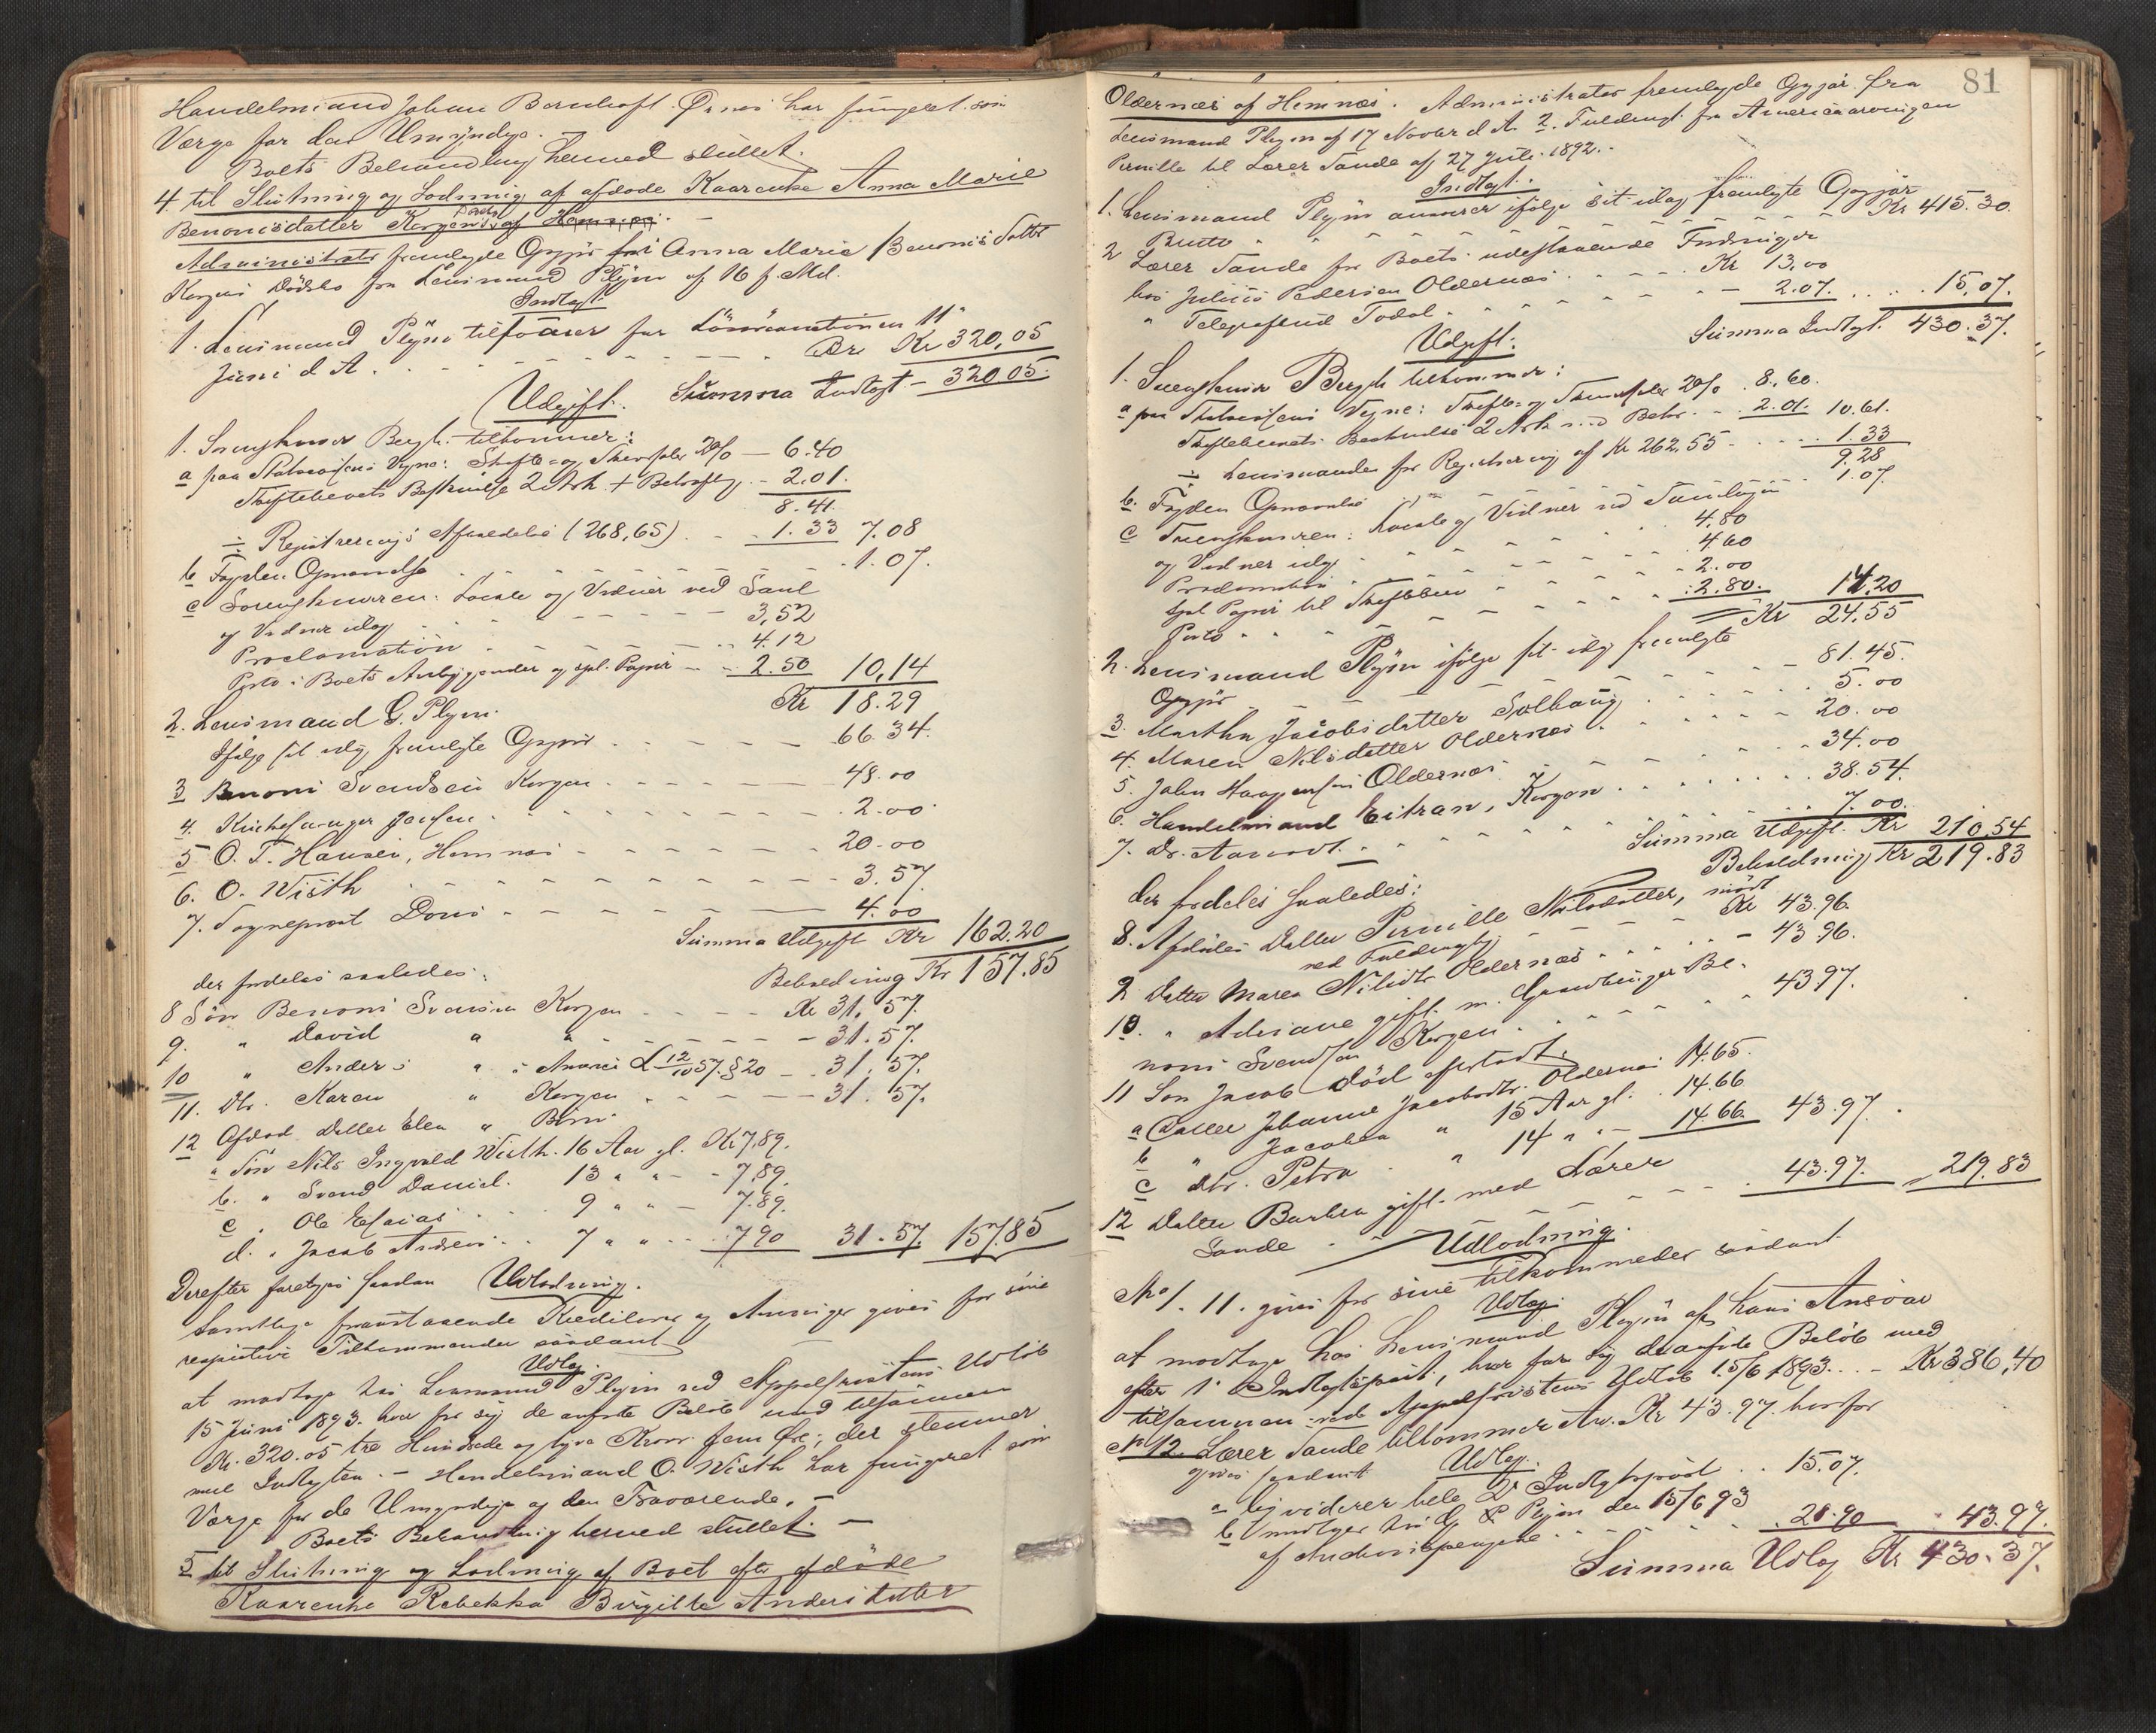 Handelsmand Johan Bernhoft Ørnes har fungeret som
Værge for den Umyndige.
Boets Behandling hermed sluttet.
4. til Slutning og Lodning af afdøde Kaarenke Anna Marie
Benonisdatter Korgens Dødsbo
Administrator fremlagde Opgjør fra Anna Marie Benonis Datter
Korgens Dødsbo fra Lensmand Plejm af 16 f. Md.
Indtægt.
1. Lensmand Plejm tilsvarer for Løsøreauctionen 11te
Juni d A. . . . . . Kr 320,05
Summa Indtægt – 320 05.
Udgift.
1. Sorenskriver Bergh tilkommer:
a paa Statscassens Vegne: Skifte- og 2% — 6.40
Skiftebrevets Beskrivelse 2 Ark + Bekræft. - 2.01.
8.41
÷ Registrerings Afhandelse (268,65) . . 1.33 7.08
b Fogden Opnævnelse . . . . . 1.07.
c Sorenskriveren: Locale og Vidner ved Saml
og Vidner idag . . . . 3,52
Proclamation . . . . 4.12
Porto i Boets Anliggender og spl. Papir - - 2.50 10,14
Kr 18.29
2. Lensmand G. Plejm
Ifølge sit idag fremlagte Opgjør . . . . 66.34.
3 Benoni Svendsen Korgen . . . . 48.00
4. Kirkesanger Jensen . . . . 2.00
5 O. T. Hansen, Hemnes . . . . 20.00
6. O. Wisth . . . . 3.57.
7. Sogneprest Dons . . . . 4.00
Summa Udgift Kr 162.20
Beholdning Kr 157.85
der fordeles saaledes:
8 Søn Benoni Svendsen Korgen . . . . Kr 31.57.
9. " David " " . . . . 31.57.
10 " Anders " i America L 12/10 57. § 20 - - 31.57.
11. Dtr. Karen " Korgen . . . . 31.57.
12 Afdød Datter Elen " Børn
a Søn Nils Ingvald Wisth. 16 Aar gl. Kr 7.89.
b. " Svend Daniel. 13 " " - 7.89.
c " Ole Esaias . . 9 " " - 7.89.
d. " Jacob Andreas . . 7 " " . . 7.90 31.57. 157.85
Derefter foretoges saadan Udlodning.
Samtlige Kreditorer og Arvinger gives for sine
respective Tilkommender saadant
Udlæg.
at modtage hos Lensmand Plejm ved Appelfristens Udløb
15 Juni 1893. hver for sig de anførte Beløb med tilsammen
Kr. 320.05 tre Hundrede og tyve Kroner fem Øre; der stemmer
med Indtægten. — Handelsmand O. Wisth har fungeret som
Værge for de Umyndige og den Fraværende. —
Boets Behandling hermed sluttet. —
5 til Slutning og Lodning af Boet efter afdøde
Kaarenke Rebekka Birgitte Andersdatter
81
Oldernæs af Hemnæs. Administrator fremlagde Opgjør fra
Lensmand Plejm af 17 Novbr d A. 2. Fuldmagt fra Americaarvingen
Pernille til Lærer Sande af 27 Juli 1892.
Indtægt.
1. Lensmand Plejm ansvarer ifølge sit idag fremlagte Opgjør
Brutto . . . . Kr 415.30.
2 Lærer Sande for Boets udestaaende Fordringer
hos Julius Pedersen Oldernæs . . . . Kr 13,00
" Telegrafbud Todal . . . . 2.07. . . . 15,07.
Summa Indtægt. 430.37.
Udgift.
1. Sorenskriver Bergh tilkommer:
a paa Statscassens Vegne: Skifte- og 2% . 8.60.
Skiftebrevets Beskrivelse 2 Ark med Bekr. - 2.01. 10.61.
÷ Lensmanden for Registrering af Kr 262,55 . . . . 1.33
9.28
b. Fogden Opnævnelse . . . . 1.07.
c Sorenskriveren: Locale og Vidner ved Samlingen
og Vidner idag . . . . 4,80
Proclamation . . . . 4.60
Spl. Papir til Skiftebrev . . . . 2.00
Porto . . . . 2.80. 14.20
Kr 24.55
2. Lensmand Plejm ifølge sit idag fremlagte
Opgjør . . . . 81.45.
3. Martha Jacobsdatter Solhaug . . . . 5.00
4. Maren Nilsdatter Oldernæs . . . . 20.00
5. John Haagensen Oldernæs . . . . 34.00
6. Handelsmand Eitran, Korgen . . . . 38.54.
7. Dr. . . . . 7.00.
Summa Udgift. Kr 210.54
Beholdning Kr 219.83
der fordeles saaledes:
8. Afdødes Datter Pernille Nilsdatter, mødt
ved Fuldmægtig . . . . Kr 43.96.
9 Datter Maren Nilsdtr Oldernæs . . . . - 43.96.
10. " Adriane gift m. Gaardbruger Be-
noni Svendsen Korgen . . . . 43.97.
11 Søn Jacob død efterladt:
a Datter Johanne Jacobsdtr. Oldernæs 14.65.
b " Jacobea " 15 Aar gl. . 14.66
c Dtr. Petra " 14 " " - 14.66. 43.97.
12 Datter Barbra gift med Lærer
Sande . . . . 43.97. 219.83
Udlodning.
No 1. 11. gives for sine tilkommender saadant
Udlæg.
at modtage hos Lensmand Plejm af hans Ansvar
efter 1e Indtægtspost, hver for sig de anførte Beløb med
tilsammen ved Appelfristens Udløb 15/6 1893 . . - Kr 386,40
No 12. Lærer Sande tilkommer Arv. Kr 43.97. hvorfor
gives saadant Udlæg.
a liqviderer hele 2de Indtægtspost . . 15.07.
b modtager hos G Plejm den 15/6 93
af Auctionspengene . . . . 28.90 43.97.
Summa Udlæg Kr 430.37.